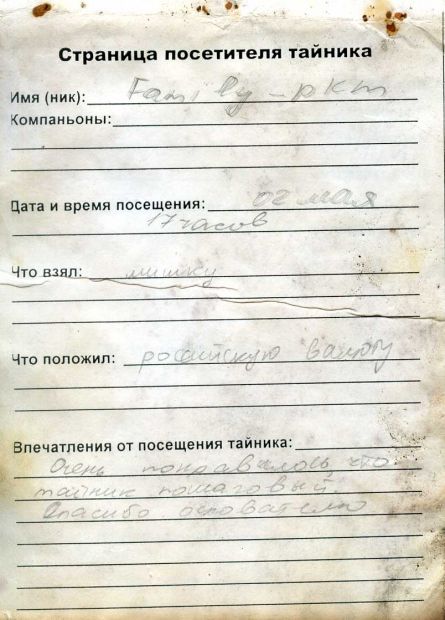 Страница посетителя тайника
Имя (ник): Family-pkm
Компаньоны:
Дата и время посещения: 02 мая
17 часов
Что взял: мишку
Что положил: российскую валюту
Впечатления от посещения тайника:
Очень понравилось, что
тайник пошаговый
Спасибо основателю